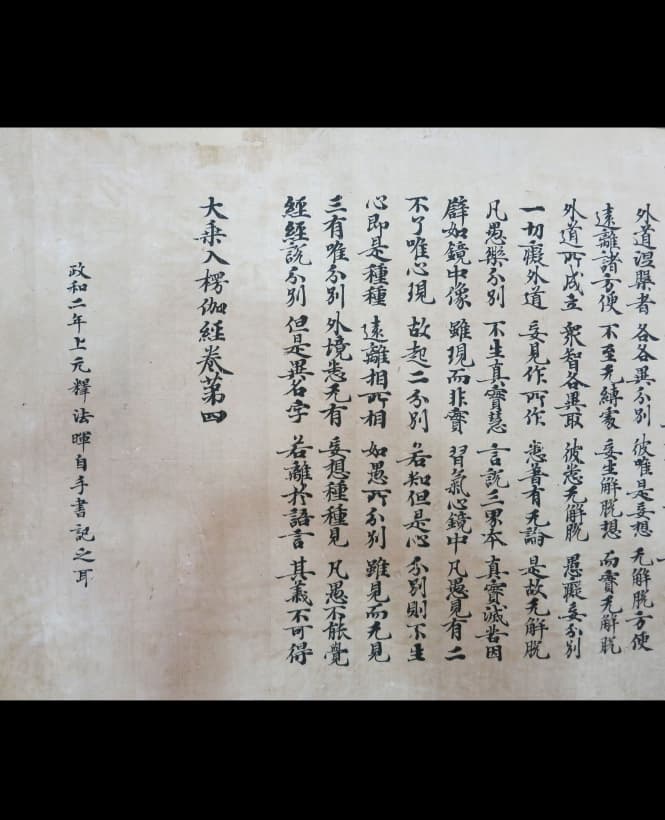 外道涅槃者 各各異分別 彼唯是妄想 无解脫方便
遠離諸方便 不至无縛處 妄生解脫想 而實无解脫
外道所成立 衆智各異取 彼悉无解脫 愚癡妄分別
一切癡外道 妄見作所作 悉著有无論 是故无解脫
凡愚樂分別 不生真實慧 言說三界本 真實滅苦因
譬如鏡中像 雖現而非實 習氣心鏡中 凡愚見有二
不了唯心現 故起二分別 若知但是心 分別則不生
心即是種種 遠離相所相 如愚所分別 雖見而无見
三有唯分別 外境悉无有 妄想種種見 凡愚不能覺
經經說分別 但是異名字 若離於語言 其義不可得
大乗入楞伽經卷第四
政和二年上元釋法暉自手書記之耳